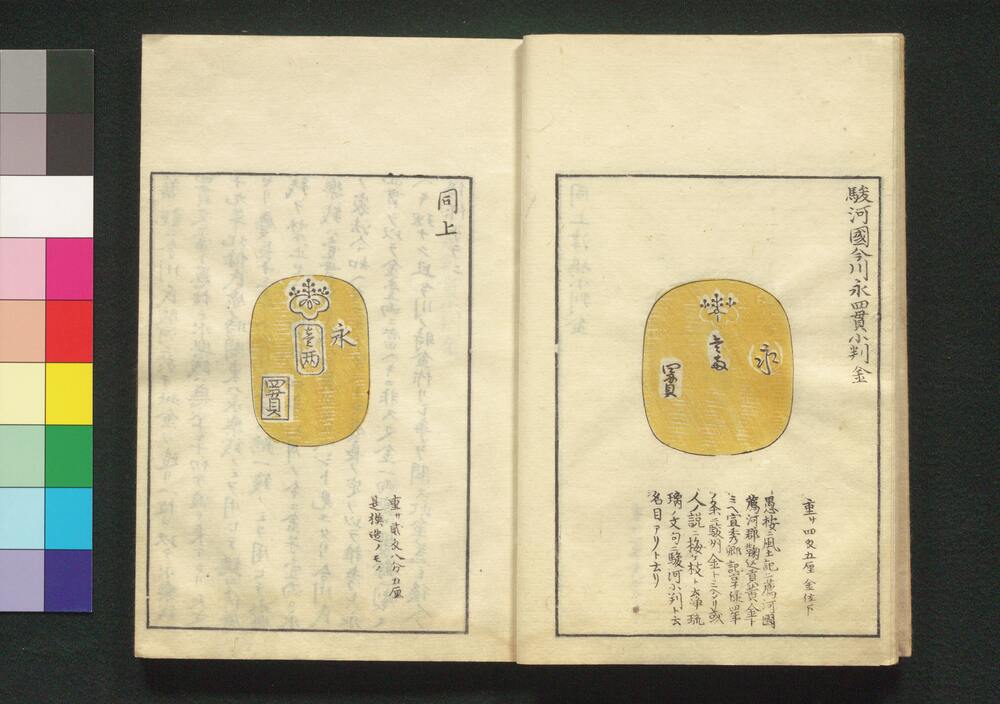 駿河國今川永四貫小判金
永
壹兩
四貫
重サ四匁五厘 金位下
愚按ニ風土記ニ駿河國
駿河郡鞠込貢黄金ト
ミヘ宣秀卿記享禄四年
ノ条ニ駿州金トミヘタリ或
人ノ説ニ梅ヶ枝ト云浄瑠
璃ノ文句ニ駿河小判ト云
名目アリト云リ
同上
永
壹两
四貫
重サ貳匁八分五厘
是模造ノモノ